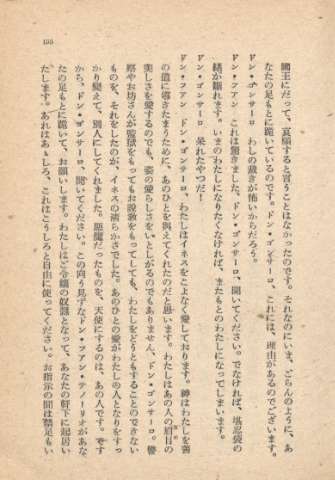 155
國王にだって、哀願すると言うことはなかったのです。それなのにいま、ごらんのように、あ
なたの足もとに跪いているのです。ドン・ゴンサーロ、これには、理由があるのでございます。
ドン・ゴンサーロ　わしの裁きが怖いからだろう。
ドン・フアン　これは驚きました。ドン・ゴンサーロ、聞いてください。でなければ、堪忍袋の
緒が切れます。いまのわたしになりたくなければ、またもとのわたしになってしまいます。
ドン・ゴンサーロ　呆れたやつだ！
ドン・フアン　ドン・ゴンサーロ、わたしはイネスをこよなく愛しております。神はわたしを善
の道に導きたまうために、あのひとを與えてくれたのだと思います。わたしはあの人の眉目の
美しさを愛するのでも、姿の愛らしさをいとしがるのでもありません、ドン・ゴンサーロ。警
察やお坊さんが監獄をもってもお説教をもってしても、わたしをどうともすることのできない
ものを、それをしたのが、イネスの清らかさでした。あのひとの愛がわたしの人となりをすっ
かり變えて、別人にしてくれました。惡魔だったものを、天使にするのは、あの人です。です
から、ドン・ゴンサーロ、聞いてください。この向う見ずなドン・フアン・テノーリオがあな
たの足もとに跪いて、お願いします。わたしはご令嬢の奴隷となって、あなたの軒下に起居い
たします。あれはあゝしろ、これはこうしろと自由に使ってください。お指示の間は禁足もい